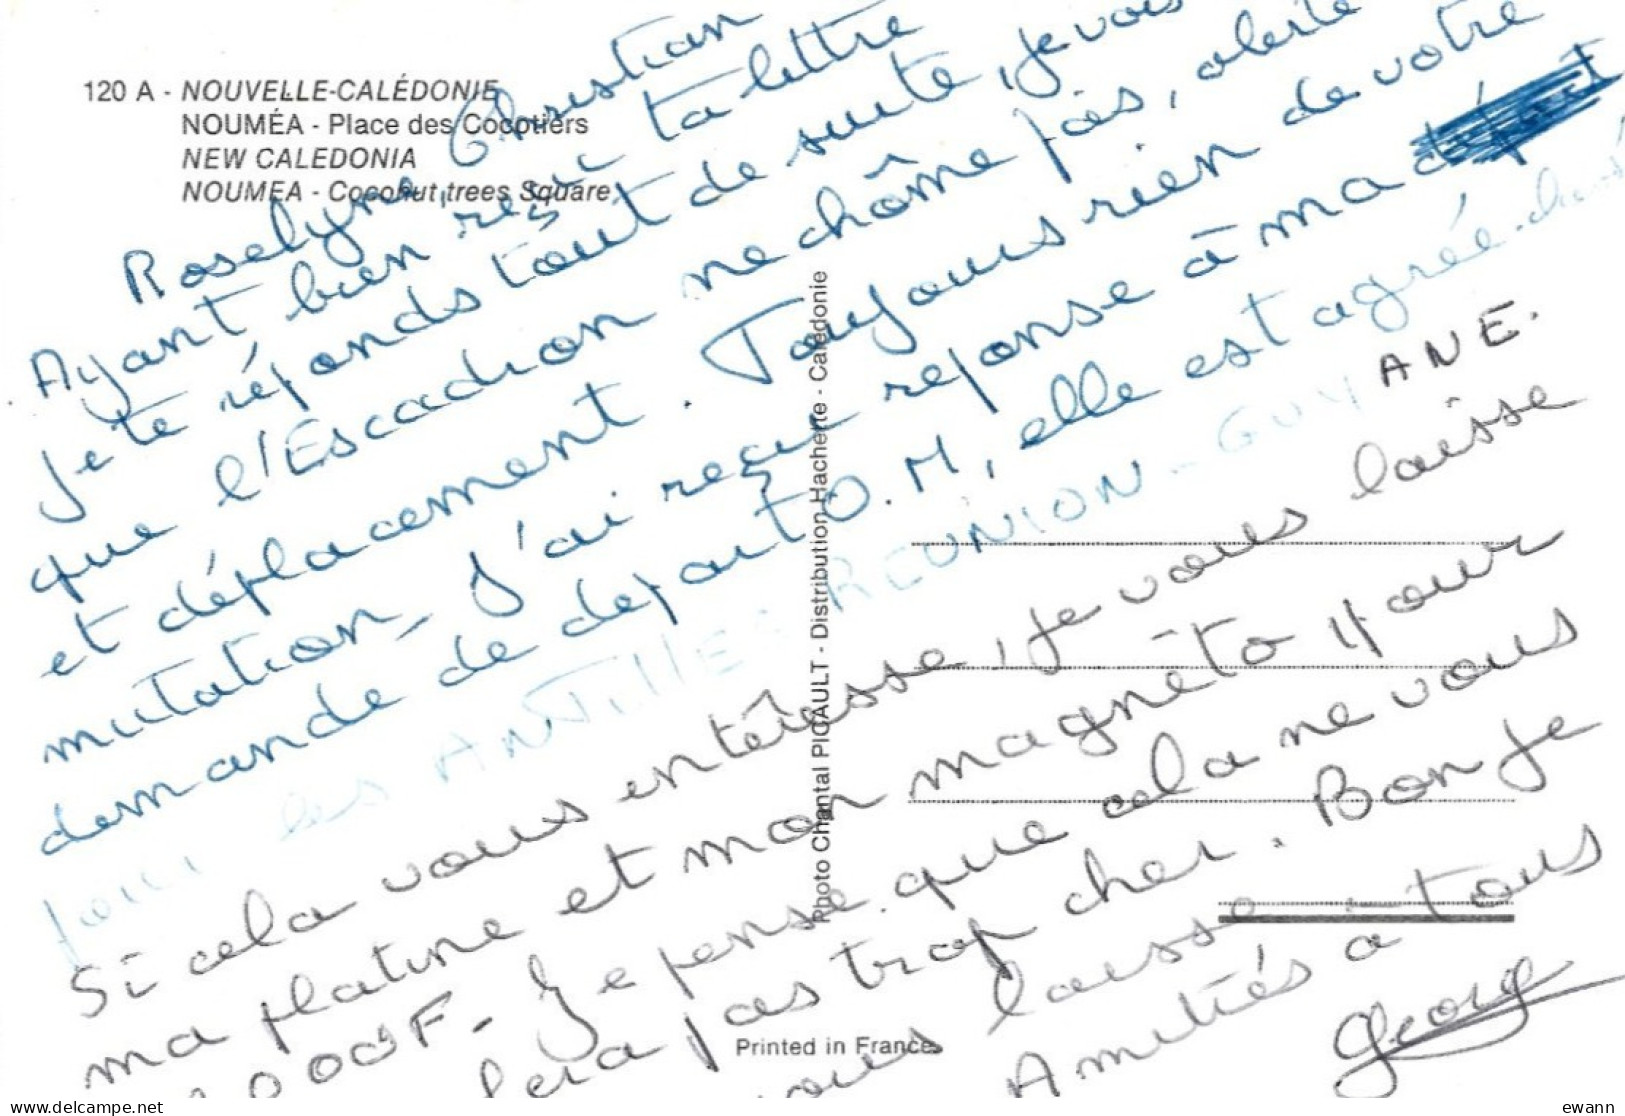 120 A - NOUVELLE-CALÉDONIE
NOUMÉA - Place des Cocotiers
NEW CALEDONIA
NOUMEA - Coconut trees Square
Roselyne, Christian
Ayant bien reçu ta lettre
je te réponds tout de suite, je vois
que l'Escadron ne chôme pas, alerte
et déplacement. Toujours rien de votre
mutation, J'ai reçu reponse à ma
demande de depart O.M, elle est agréée.
pour les ANTILLES REUNION - GUYANE.
Si cela vous entéresse, je vous laisse
ma platine et mon magnéto pour
000F - Je pense que cela ne vous
fera pas trop cher. Bon je
vous laisse - Amitiés a tous
Georg
Photo Chantal PICAULT - Distribution Hachette - Calédonie
Printed in France
ewann